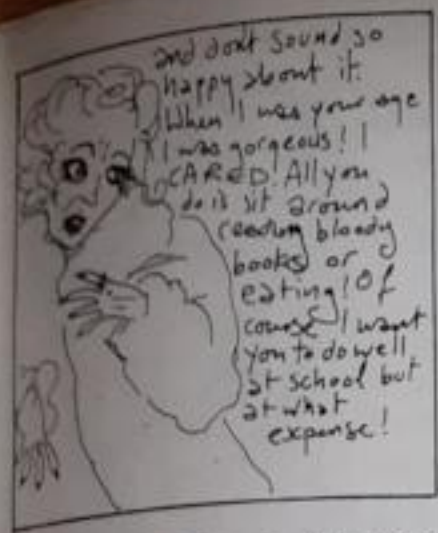 and dont sound so
happy about it.
When I was your age
I was gorgeous! I
CARED. All you
do is sit around
reading bloody
books or
eating! Of
course I want
you to do well
at school but
at what
expense!